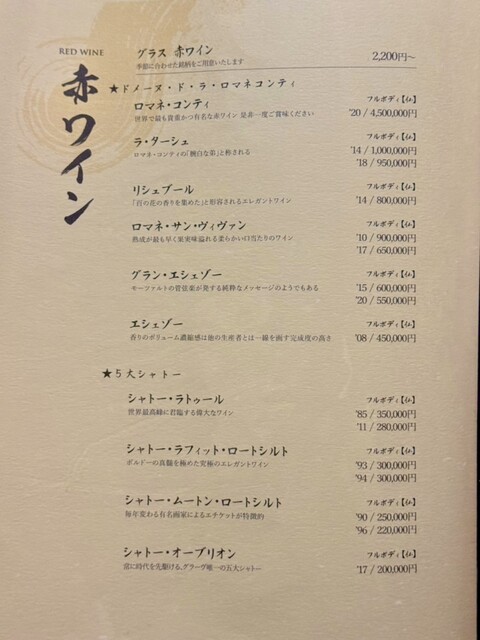 RED WINE
赤ワイン
グラス 赤ワイン 2,200円～
季節に合わせた銘柄をご用意いたします
★ドメーヌ・ド・ラ・ロマネコンティ
ロマネ・コンティ フルボディ【仏】
世界で最も貴重かつ有名な赤ワイン 是非一度ご賞味ください '20 / 4,500,000円
ラ・ターシュ フルボディ【仏】
ロマネ・コンティの「腕白な弟」と称される '14 / 1,000,000円
'18 / 950,000円
リシュブール フルボディ【仏】
「百の花の香りを集めた」と形容されるエレガントワイン '14 / 800,000円
ロマネ・サン・ヴィヴァン フルボディ【仏】
熟成が最も早く果実味溢れる柔らかい口当たりのワイン '10 / 900,000円
'17 / 650,000円
グラン・エシェゾー フルボディ【仏】
モーツァルトの管弦楽が発する純粋なメッセージのようでもある '15 / 600,000円
'20 / 550,000円
エシェゾー フルボディ【仏】
香りのボリューム濃縮感は他の生産者とは一線を画す完成度の高さ '08 / 450,000円
★5大シャトー
シャトー・ラトゥール フルボディ【仏】
世界最高峰に君臨する偉大なワイン '85 / 350,000円
'11 / 280,000円
シャトー・ラフィット・ロートシルト フルボディ【仏】
ボルドーの真髄を極めた究極のエレガントワイン '93 / 300,000円
'94 / 300,000円
シャトー・ムートン・ロートシルト フルボディ【仏】
毎年変わる有名画家によるエチケットが特徴的 '90 / 250,000円
'96 / 220,000円
シャトー・オーブリオン フルボディ【仏】
常に時代を先駆ける、グラーヴ唯一の五大シャトー '17 / 200,000円